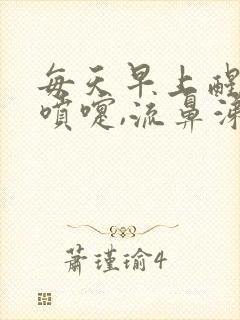 每天早上醒
噴嚏,流鼻涕
蕭瑾瑜4